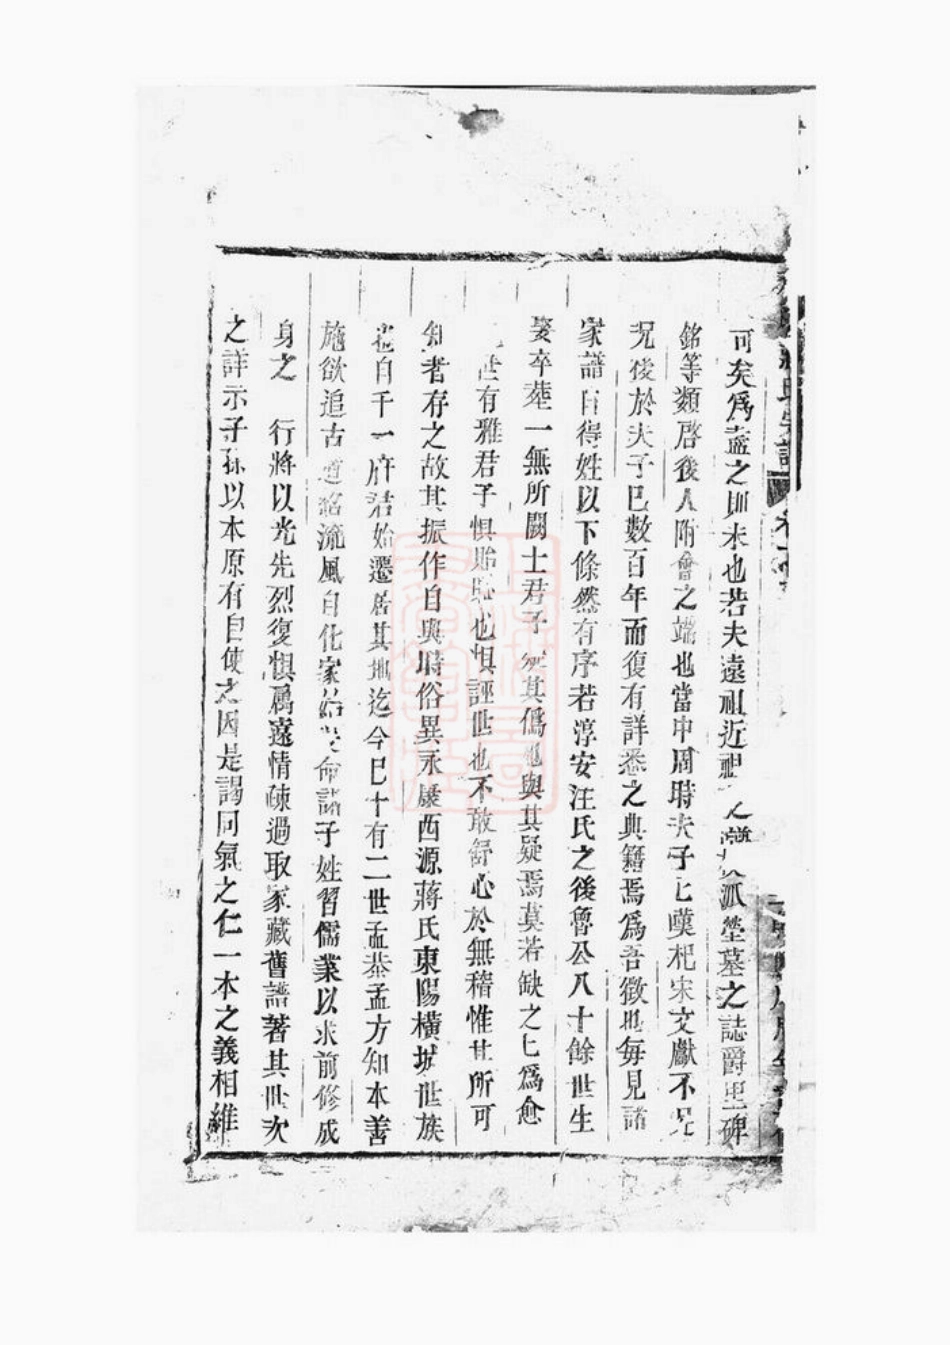 可矣為盡之則未也若夫遠祖近祖之派塋墓之誌爵里碑
銘等類啓後人附會之端也當中周時夫子已嘆杞宋文獻不足
況後於夫子已數百年而復有詳悉之典籍焉為吾徵也每見諸
家譜自得姓以下條然有序若淳安汪氏之後魯公八十餘世生
娶卒葬一無所闕士君子其偽也與其疑焉莫若缺之已為愈
世有雅君子惧貽也惧誣世也不敢舒心於無稽惟其所可
知者存之故其振作自與時俗異永康西源蔣氏東陽橫城世族
自千一府始遷居其地迄今已十有二世孟恭孟方知本善
施欲追古流風自化家命諸子姓習儒業以求前修成
身之 行將以光先烈復惧屬遠情疎過取家藏舊譜著其世次
之詳示子孫以本原有自使之因是謁同氣之仁一本之義相維